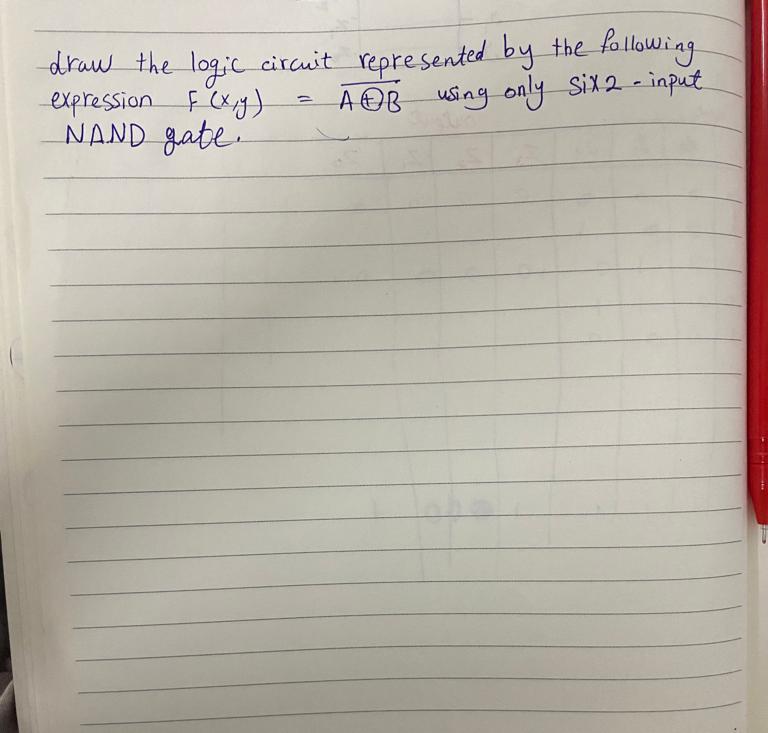 draw the logic circuit represented by the following
expression F(x,y) = \overline{A⊕B} using only six 2-input
NAND gate.